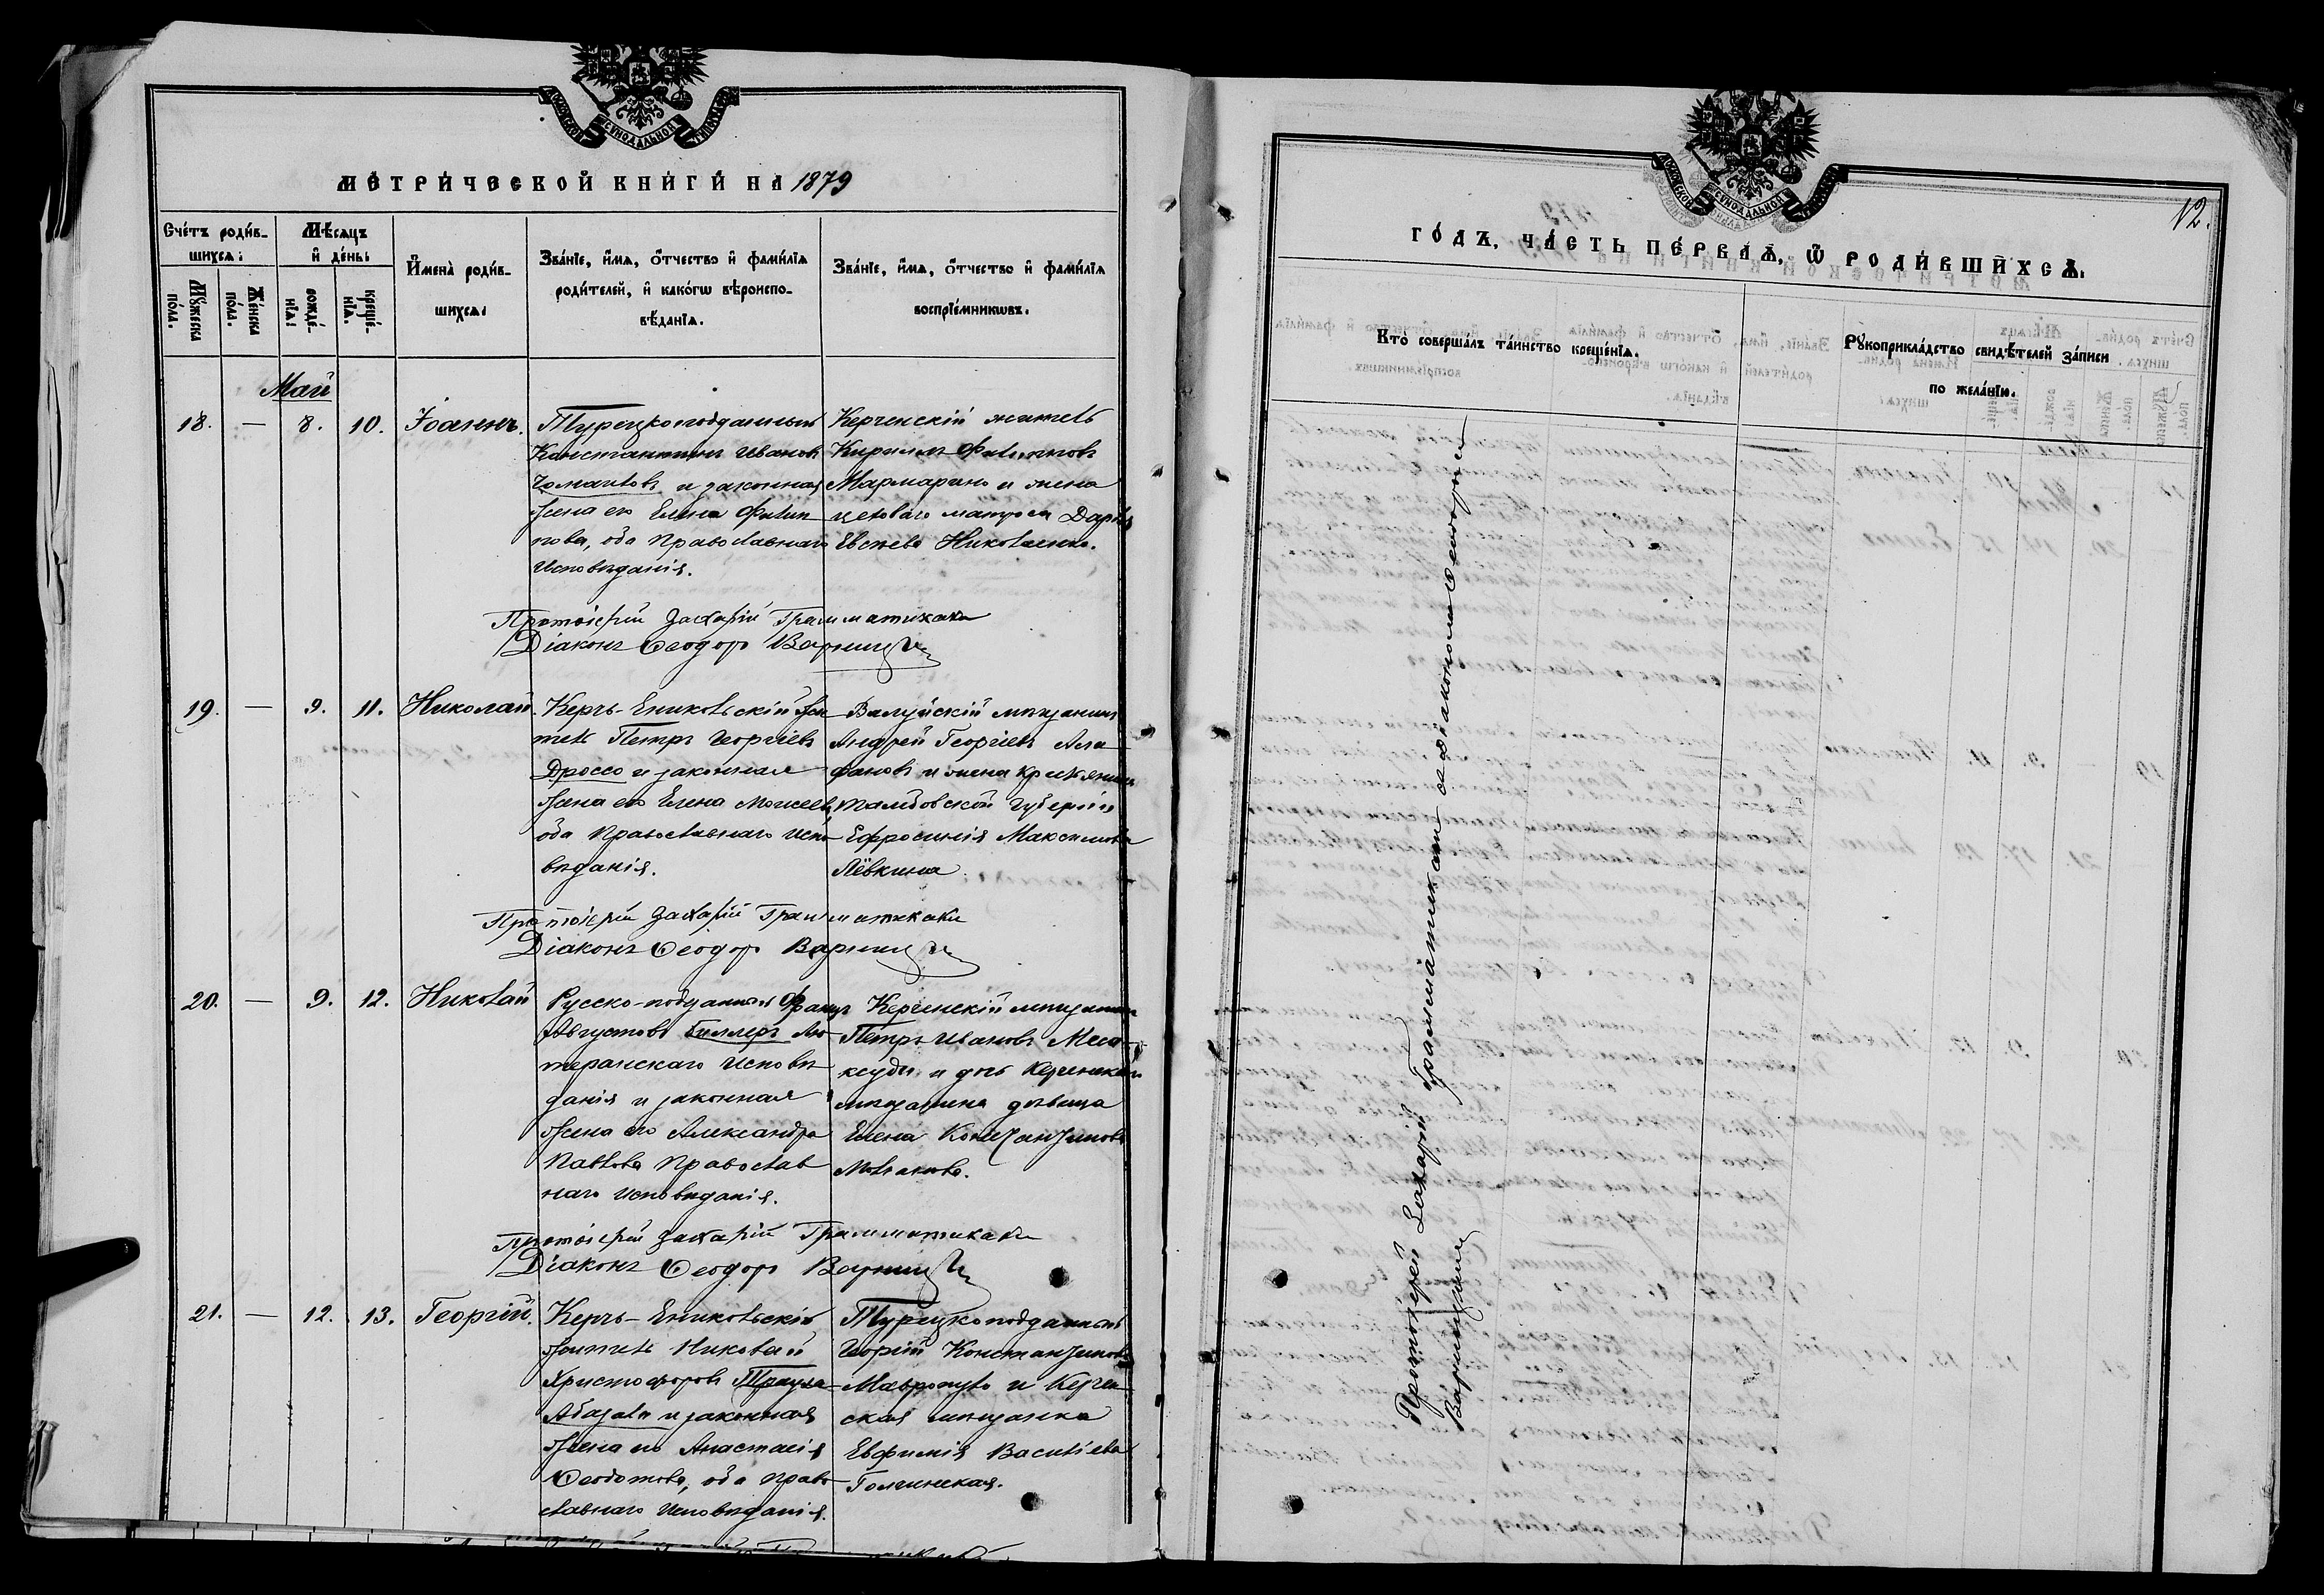 МОСКОВСКОЙ СѴНОДАЛЬНОЙ ТИПОГРАФІИ
МЕТРИЧЕСКОЙ КНИГИ НА 1879
Счетъ родив-
шихся:
Мужеска
пола.
Женска
пола.
Мѣсяцъ
и день:
рожде-
нія:
креще-
нія.
Имена родив-
шихся:
Званіе, имя, отчество и фамилія
родителей, и какогѡ вѣроиспо-
вѣданія.
Званіе, имя, отчество и фамилія
воспріемниковъ.
Май
18. — 8. 10. Іоаннъ.
Турецкоподданный
Константинъ Ивановъ
и законная
жена его Елена Филип
пова, оба Православнаго
Исповѣданія.
Керченскій житель
Кириллъ Филипповъ
Мармарино и жена
матроса Дарія
Николаенко.
Протоіерей Захарій Грамматикаки
Діаконъ Ѳеодоръ Варницкій
19. — 9. 11. Николай.
Керчь-Еникольскій жи
тель Петръ Георгіевъ
Дроссо и законная
жена его Елена Моисеева,
оба Православнаго Испо
вѣданія.
Валуйскій мѣщанинъ
Андрей Георгіевъ Ага
фановъ и жена крестьянина
Тамбовской губерніи
Ефросинія Максимова
Лёвкина.
Протоіерей Захарій Грамматикаки
Діаконъ Ѳеодоръ Варницкій
20. — 9. 12. Николай
Русско-подданный Францъ
Августовъ Биллеръ Лю
теранскаго Исповѣ
данія и законная
жена его Александра
Павлова Православ
наго Исповѣданія.
Керченскій мѣщанинъ
Петръ Ивановъ Меса
ксуди и дочь Керченскаго
мѣщанина дѣвица
Елена Константинова
Протоіерей Захарій Грамматикаки
Діаконъ Ѳеодоръ Варницкій
21. — 12. 13. Георгій.
Керчь-Еникольскій
житель Николай
Христофоровъ
и законная
жена его Анастасія
Ѳеодотова, оба право
славнаго Исповѣданія.
Турецкоподданный
Георгій Константиновъ
Мавропуло и Керчен
ская мѣщанка
Евфимія Васильева
МОСКОВСКОЙ СѴНОДАЛЬНОЙ ТИПОГРАФІИ
12.
ГОДЪ, ЧАСТЬ ПЕРВАЯ, Ѡ РОДИВШИХСЯ.
Кто совершалъ таинство крещенія.
Рукоприкладство свидѣтелей записи
по желанію.
Протоіерей Захарій Грамматикаки съ діакономъ Ѳеодоромъ
Варницкимъ